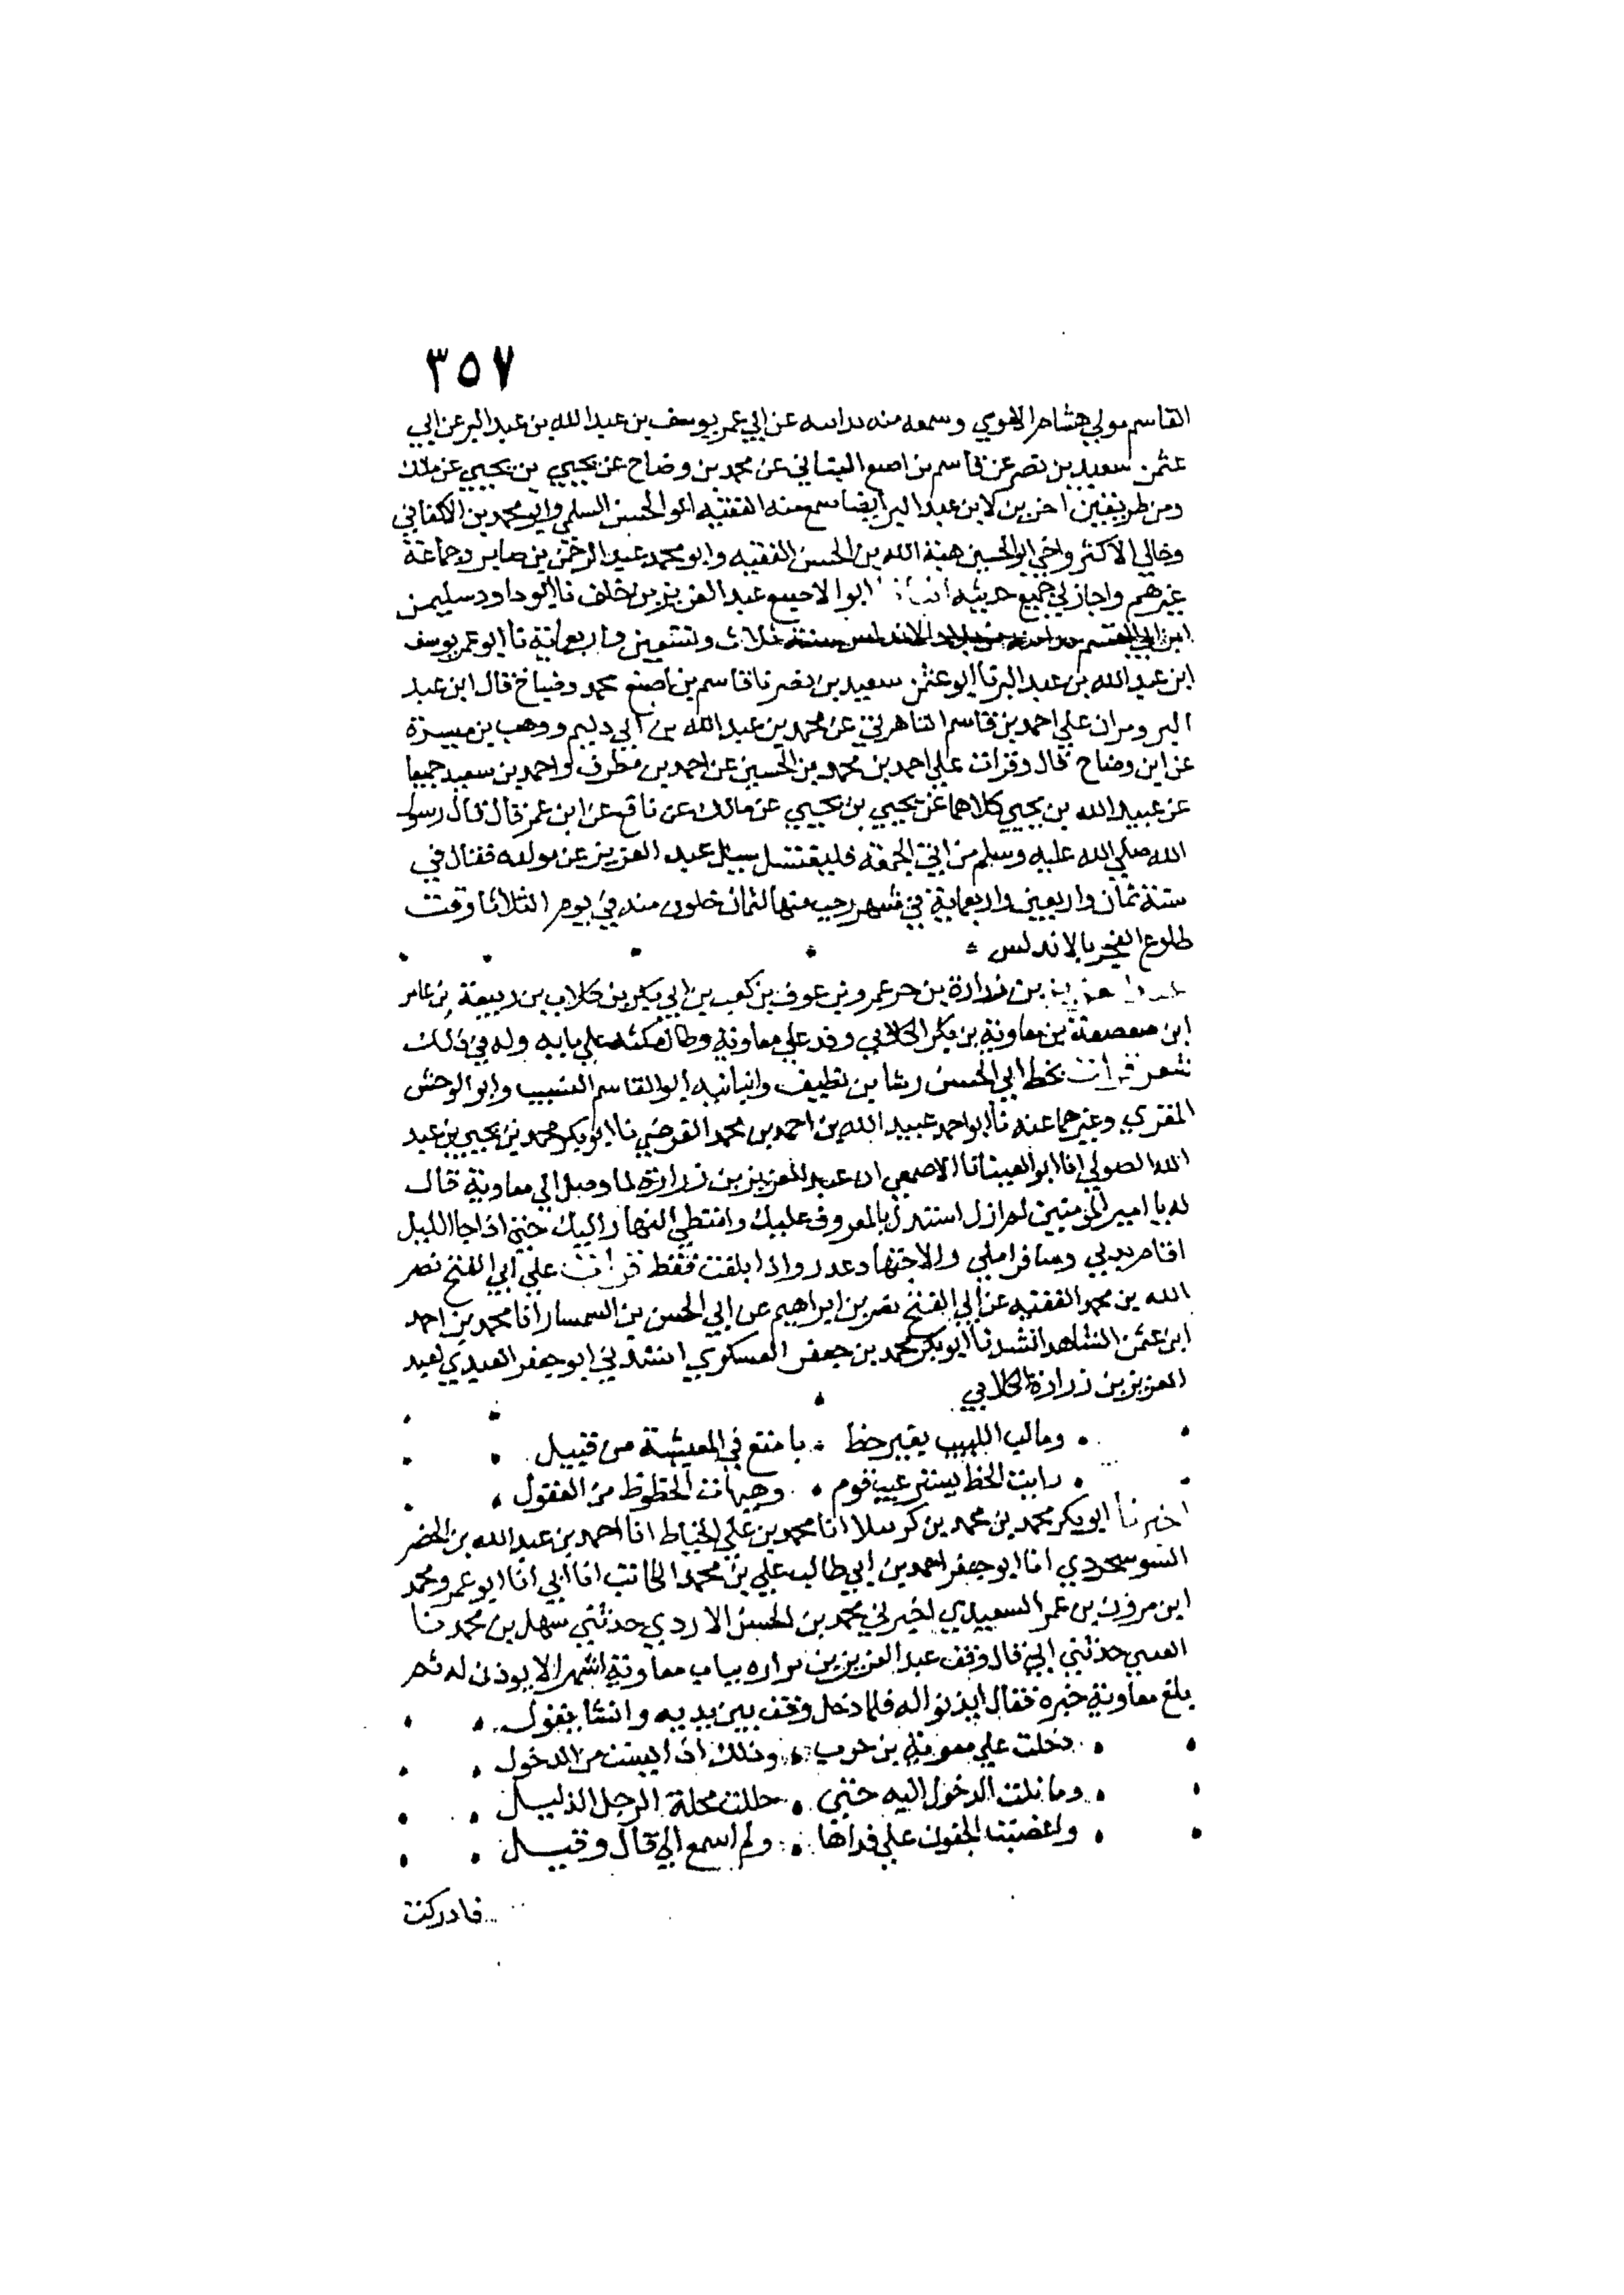 ٣٥٧
القاسم مولي هشام الاموي وسمعه منه بدانيه عن ابي عمر يوسف بن عبد الله بن عبد البر عن ابي
عثمن سعيد بن نصر عن قاسم بن اصبع البياني عن محمد بن وضاح عن يحيي بن يحيي عن ملك
ومن طريقين اخرين لابن عبد البر ايضا سمع منه الفقيه ابو الحسن السلمي وابو محمد بن الاكفاني
وخالي الاكثر واخي ابو الحسين هبة الله بن الحسن الفقيه وابو محمد عبد الرحمن بن صابر وجماعة
غيرهم واجاز لي جميع حديثه ابو الاصبع عبد العزيز بن خلف نا ابو داود سليمن
ابن ابي القسم بدانيه من بلاد الاندلس سنة ثلاث وتسعين واربعماية نا ابو عمر يوسف
ابن عبد الله بن عبد البر نا ابو عثمن سعيد بن نصر نا قاسم بن اصبع محمد وضاح قال ابن عبد
البر وقرات علي احمد بن قاسم التاهرتي عن محمد بن عبد الله بن ابي دليم ووهب بن ميسرة
عن ابن وضاح قال وقرات علي احمد بن محمد بن الحسين عن احمد بن مطرف واحمد بن سعيد جميعا
عن عبيد الله بن يحيي كلاهما عن يحيي بن يحيي عن مالك عن نافع عن ابن عمر قال قال رسول
الله صلي الله عليه وسلم من اتي الجمعة فليغتسل سيل عبد العزيز عن مولده فقال في
سنة ثمان واربعين واربعماية في شهر رجب منها لثمان خلون منه في يوم الثلاثا وقت
طلوع الفجر بالاندلس
عبد العزيز بن زرارة بن جز عمرو بن عوف بن كعب بن ابي بكر بن كلاب بن ربيعة بن عامر
ابن صعصعة بن معاوية بن بكر الكلابي وفد علي معاوية وطال مكثه علي بابه وله في ذلك
شعر قرات بخط ابي الحسن رشا بن نظيف وانبانيه ابو القاسم النسيب وابو الوحش
المقري وغيرهما عنه نا ابو احمد عبيد الله بن احمد بن محمد الفرضي نا ابو بكر محمد بن يحيي بن عبد
الله الصولي انا ابو العينا نا الاصمعي ان عبد العزيز بن زرارة لما وصل الي معاوية قال
له يا امير المومنين لم ازل استدل بالمعروف عليك وامتطي النهار اليك حتي اذا جا الليل
اقام بدني وسافر املي والاجتهاد عذر واذا بلغت فقط قرات علي ابي الفتح نصر
الله بن محمد الفقيه عن ابي الفتح نصر بن ابراهيم عن ابي الحسن بن السمسار انا محمد بن احمد
ابن عثمن الشاهد انشدنا ابو بكر محمد بن جعفر العسكري انشدني ابو جعفر العبدي لعبد
العزيز بن زرارة الكلابي
وما لب اللبيب بغير حظ بامتع في المعيشة من فتيل
رايت الحظ يستر عيب قوم وهيهات الحظوظ من العقول
اخبرنا ابو بكر محمد بن محمد بن كرسلا انا محمد بن علي الخياط انا احمد بن عبد الله بن الخضر
السوسنجردي انا ابو جعفر احمد بن ابي طالب علي بن محمد الكاتب انا ابي انا ابو عمرو محمد
ابن مروان بن عمر السعيدي اخبرني محمد بن الحسن الازدي حدثني سهل بن محمد نا
العتبي حدثني ابي قال وقف عبد العزيز بن زراره بباب معاوية اشهرا لا يوذن له ثم
بلغ معاوية خبره فقال ايذنوا له فلما دخل وقف بين يديه وانشا يقول
دخلت علي معوية بن حرب وذلك اذ ايست من الدخول
وما نلت الدخول اليه حتي حللت محلة الرجل الذليل
واغضيت الجفون علي قذاها ولم اسمع الي قال وقيل
فادركت